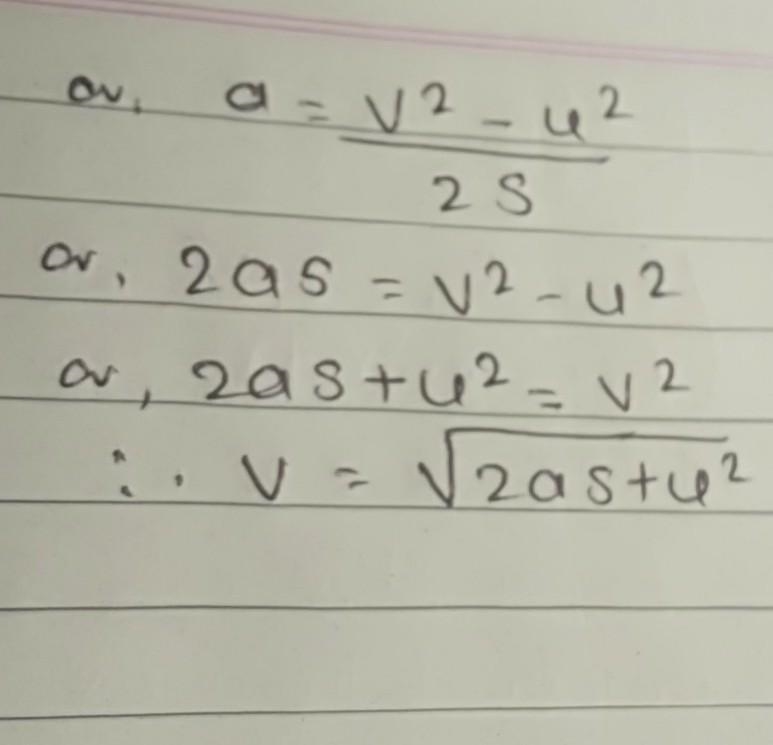 or, a = v² - u² / 2s
or, 2as = v² - u²
or, 2as + u² = v²
∴ v = √2as + u²